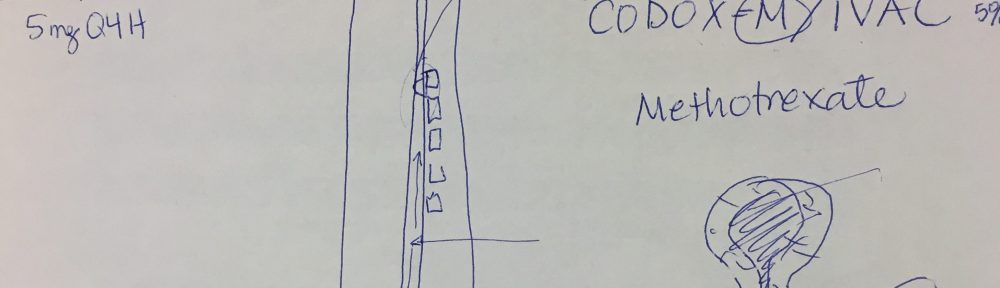 5mg Q4H
CODOX-M/IVAC
Methotrexate